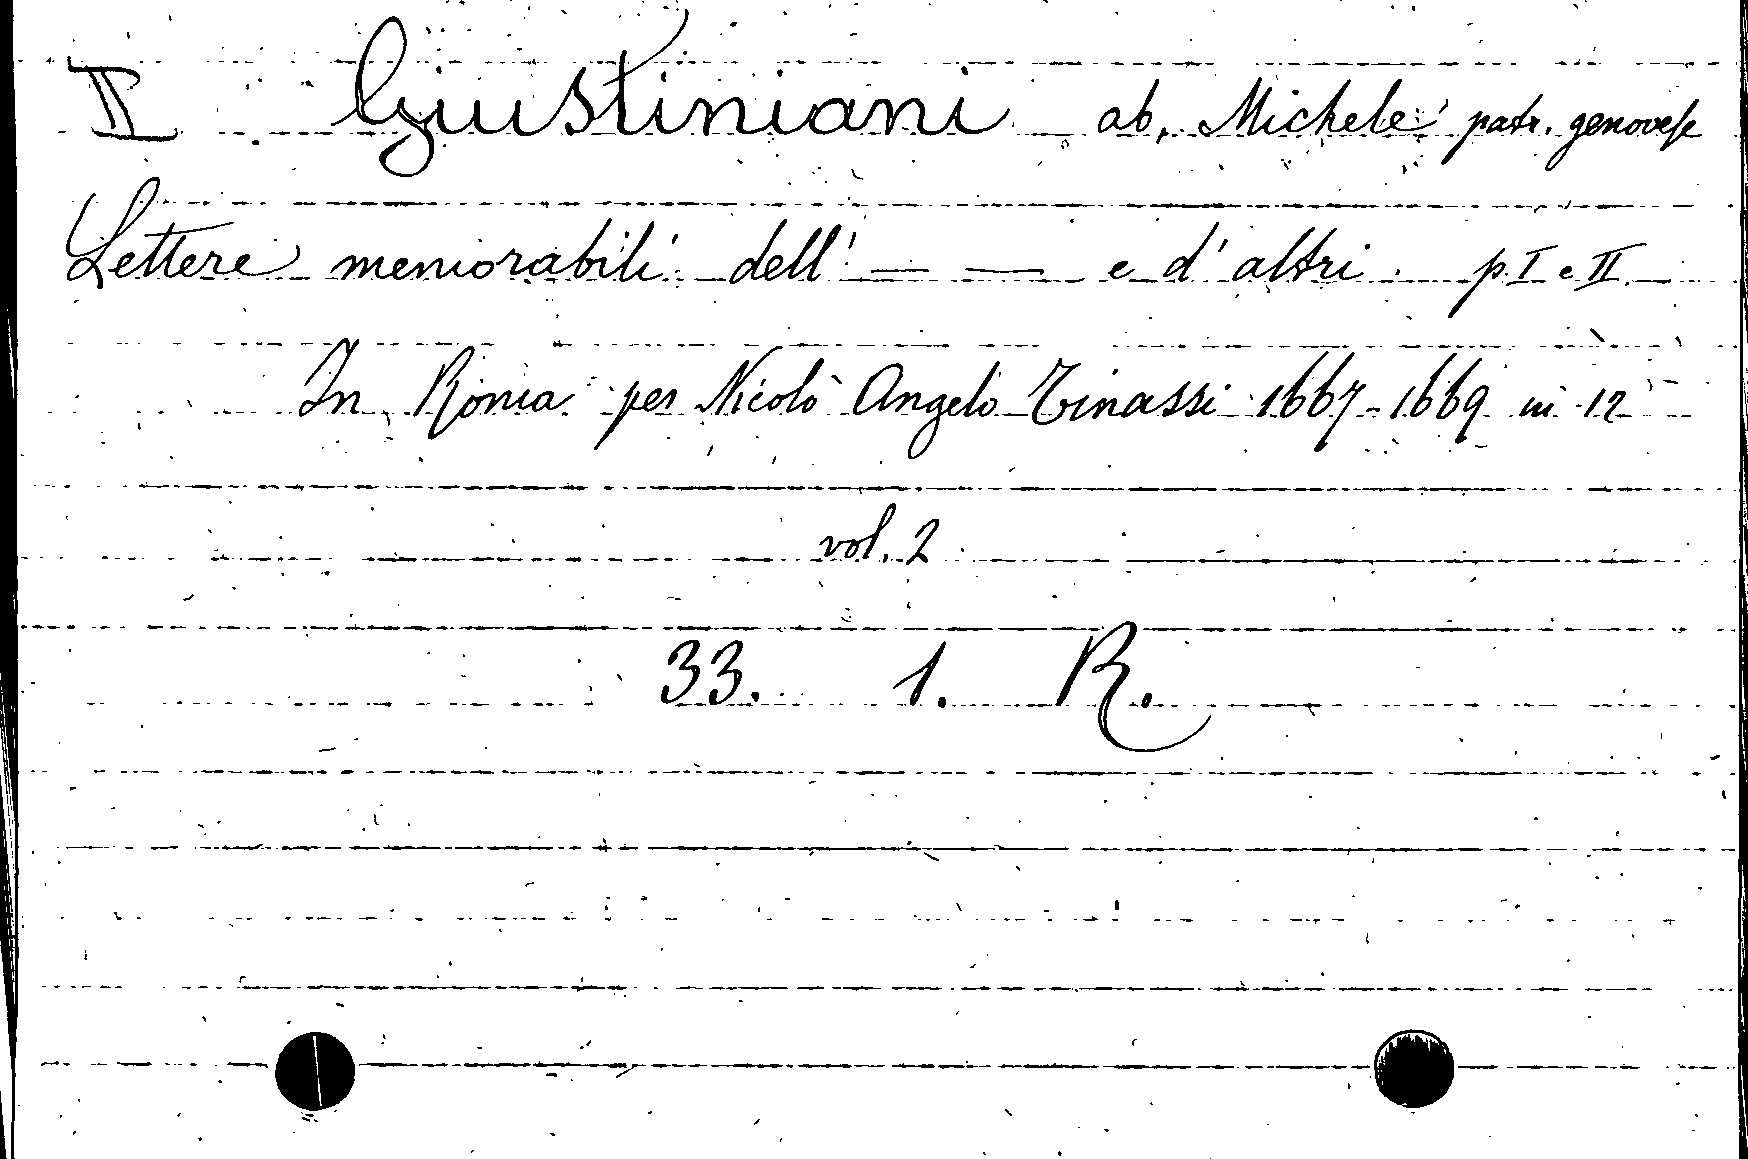 II Giustiniani ab. Michele patr. genovese
Lettere memorabili dell' — — e d'altri. p. I e II.
In Roma per Nicolò Angelo Tinassi 1667-1669 in 12
vol. 2
33. 1. R.